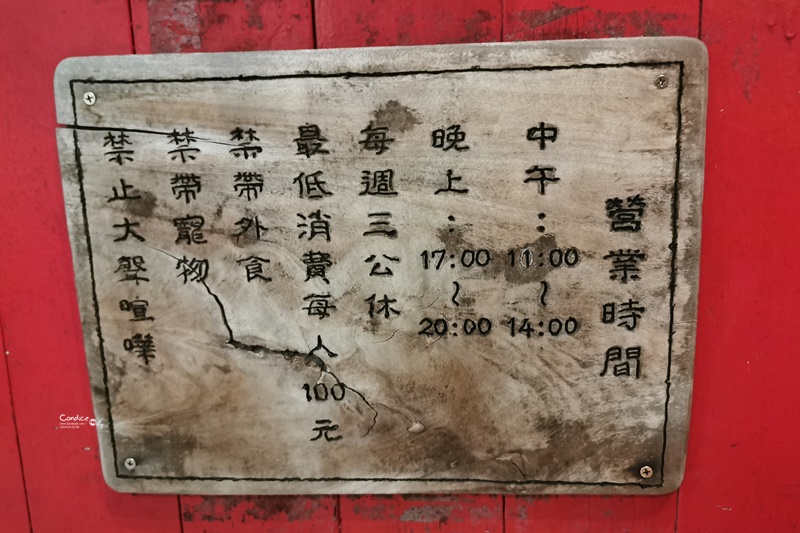 營業時間
中午：11:00～14:00
晚上：17:00～20:00
每週三公休
最低消費每人100元
禁帶外食
禁帶寵物
禁止大聲喧嘩
Candice